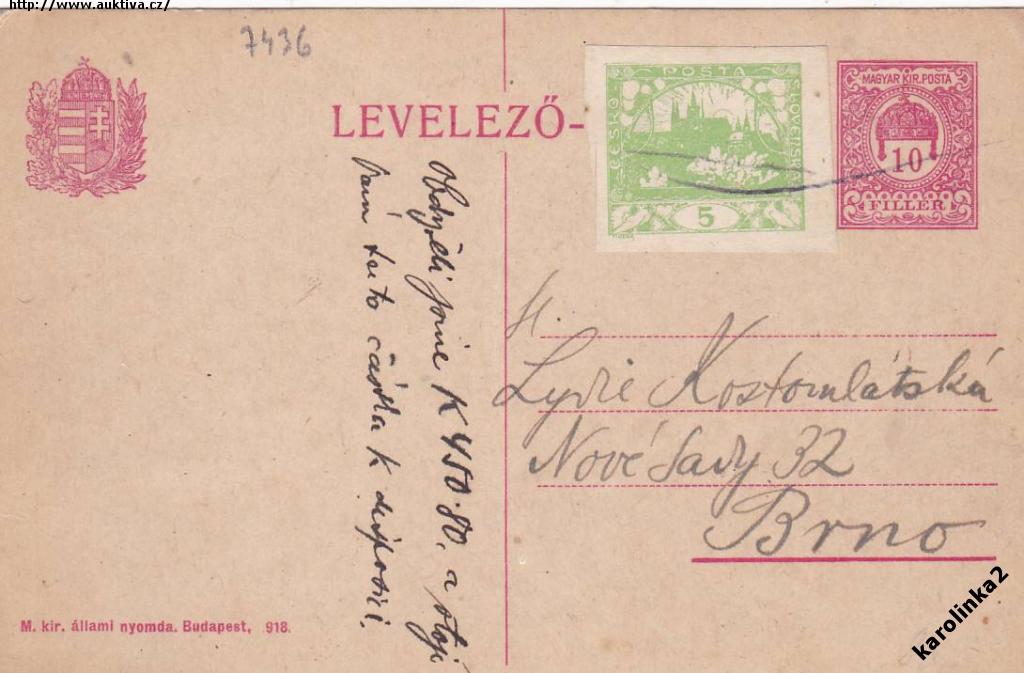 http://www.auktiva.cz/
7436
LEVELEZŐ-
POSTA
ČESKO
SLOVENSK
5
MAGYAR KIR. POSTA
10
FILLÉR
jsme K 450·80. a stojí
Vám tato částka k disposici.
Lydie Kostomlátská
Nové Sady 32
Brno
M. kir. állami nyomda. Budapest, 918.
karolinka2